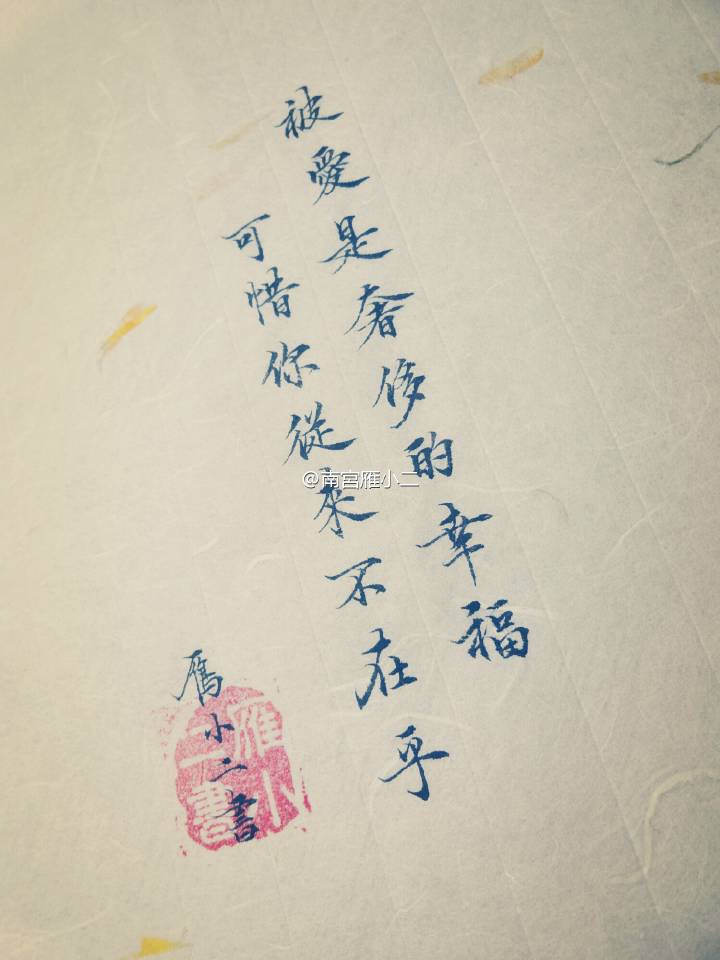 被愛是奢侈的幸福
可惜你從來不在乎
雁小二書
雁小二書
@南宫雁小二